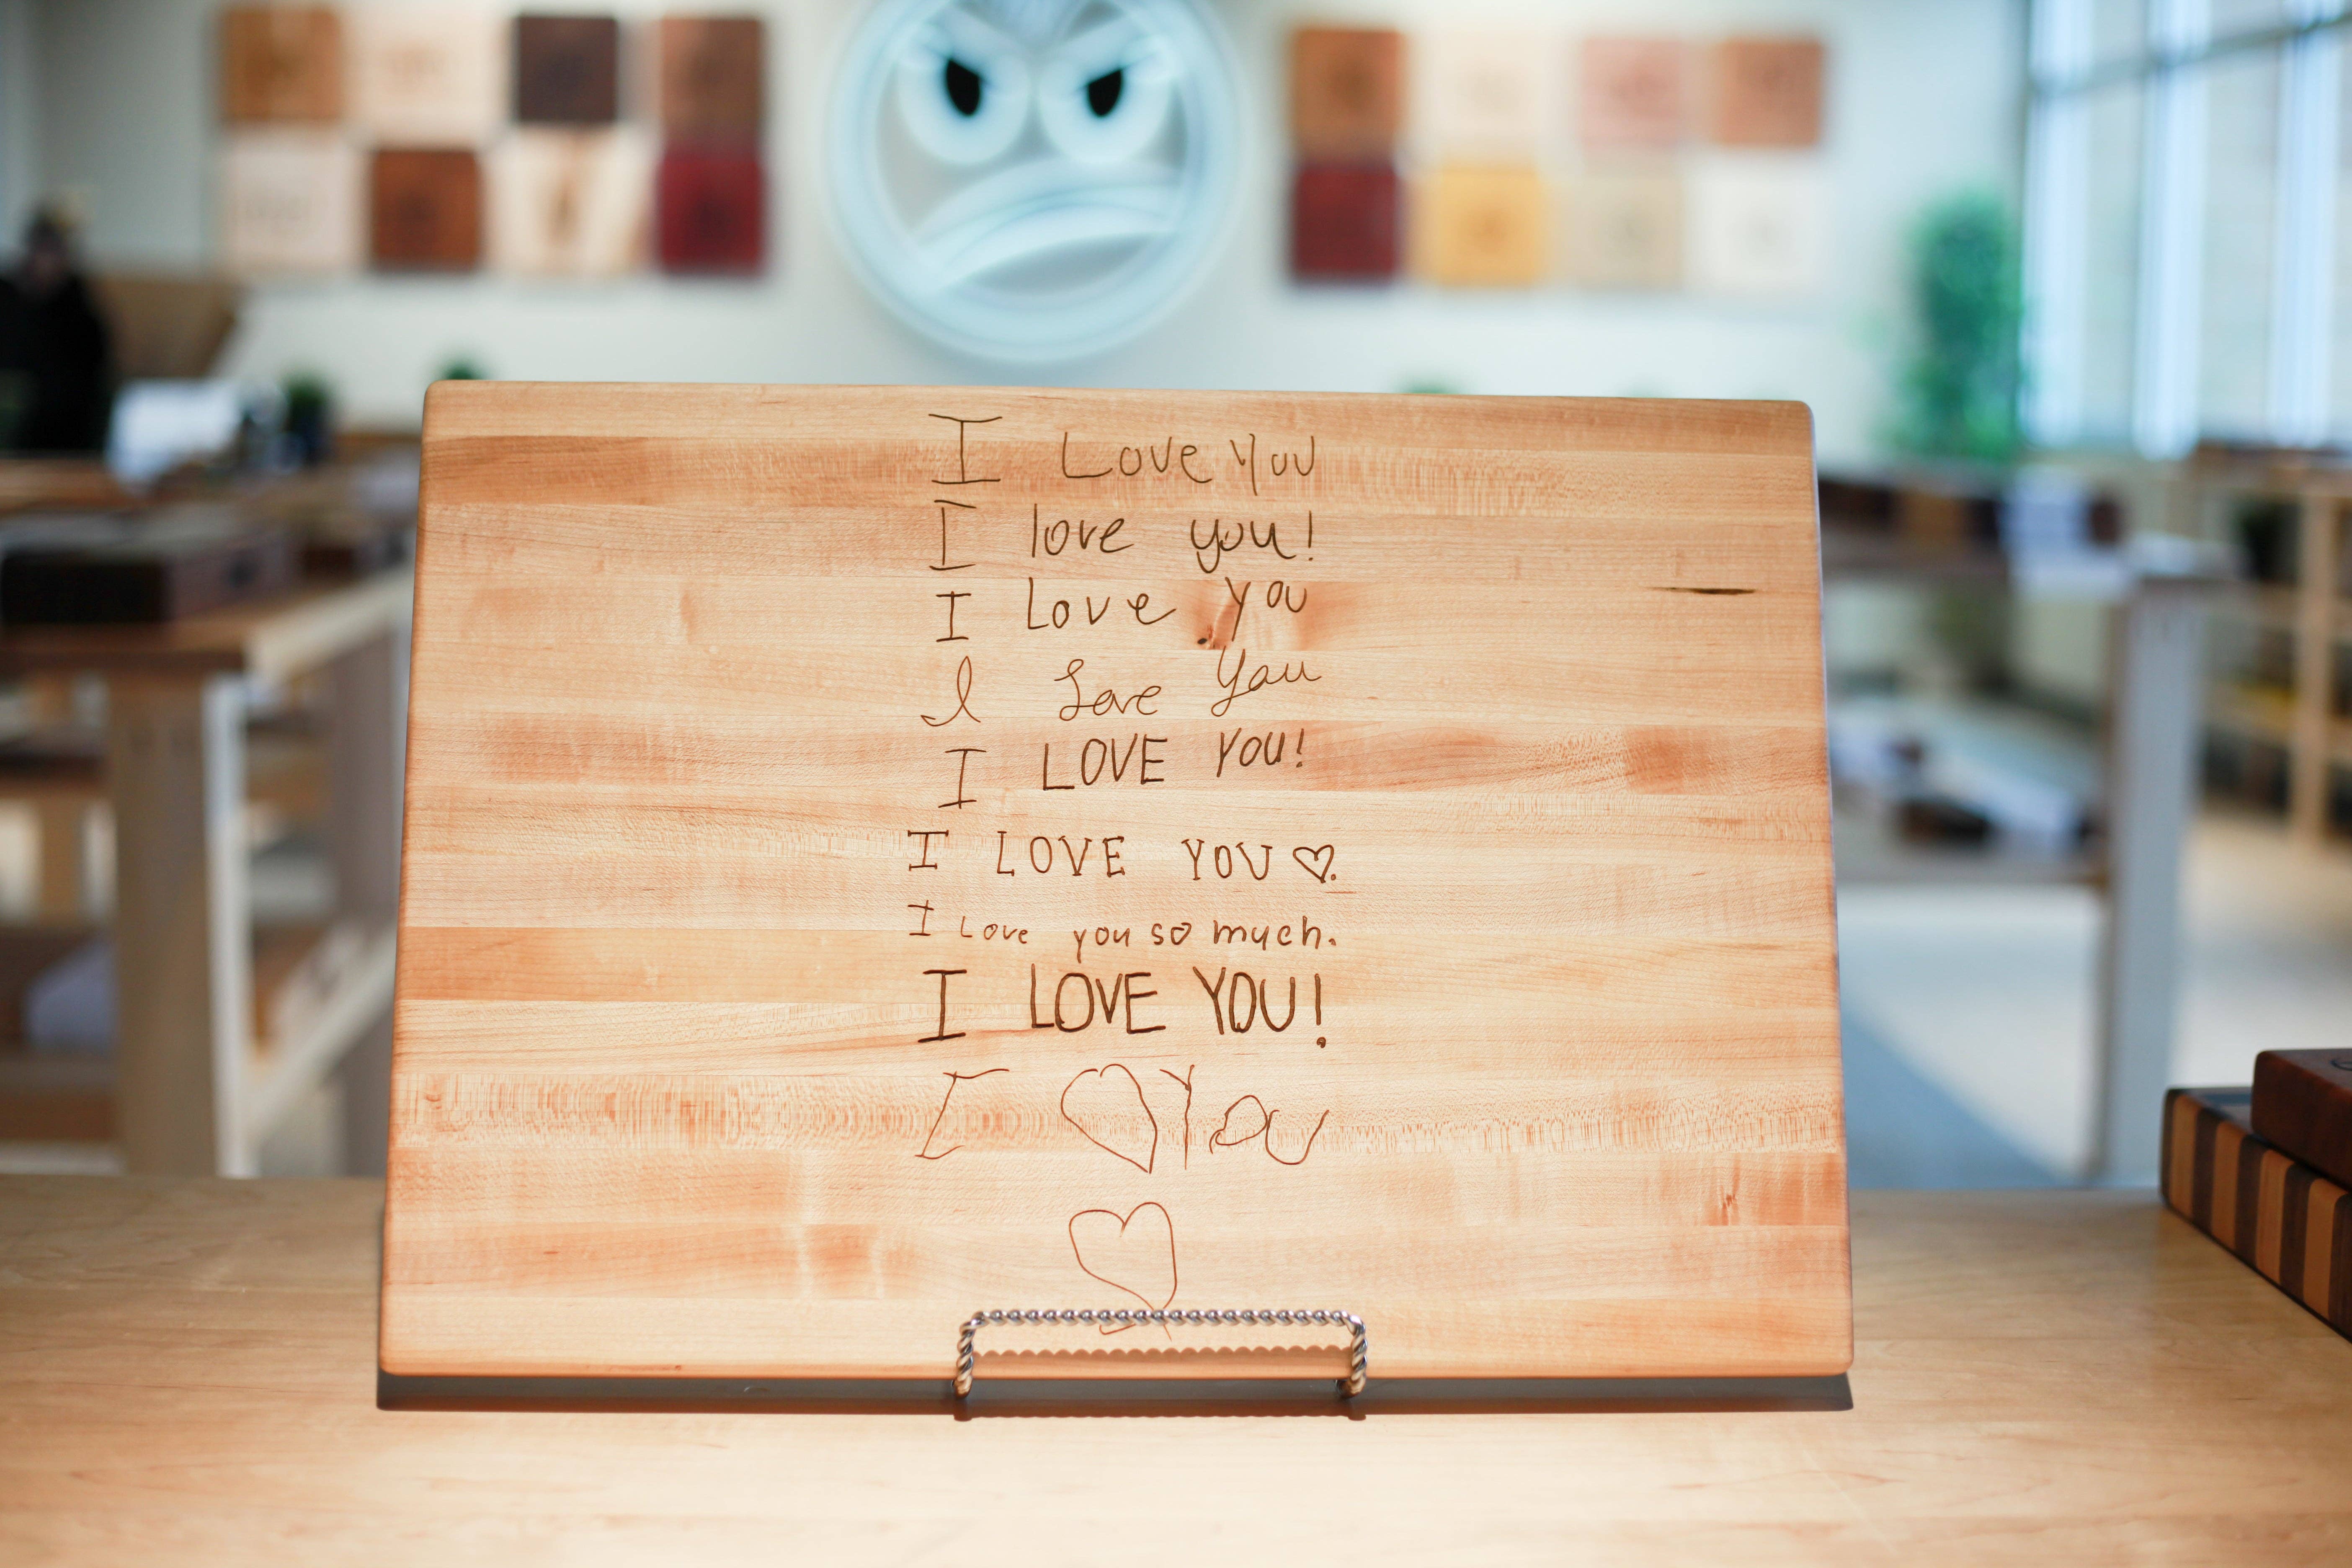 I Love You
I love you!
I Love You
I Love You
I LOVE YOU!
I LOVE YOU ♡.
I Love you so much.
I LOVE YOU!
I ♡ You
♡